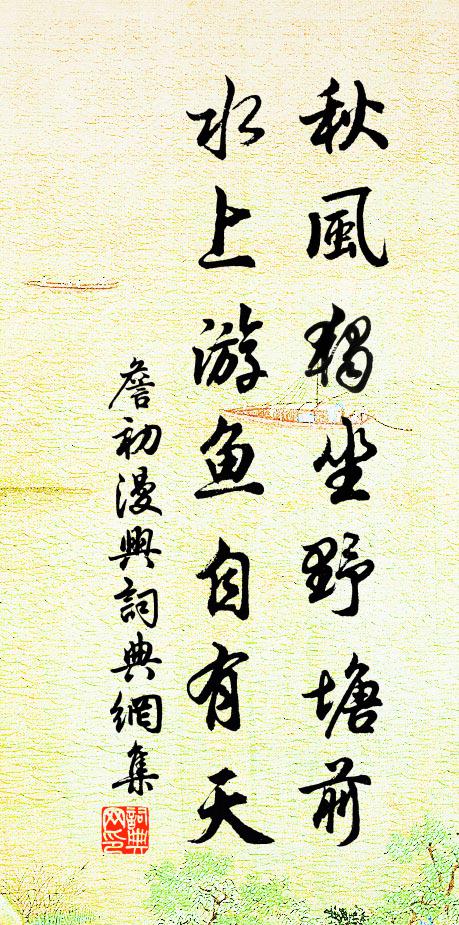 秋風獨坐野塘前
水上游鱼自有天
詹初漫興詞典網集
詞典网印